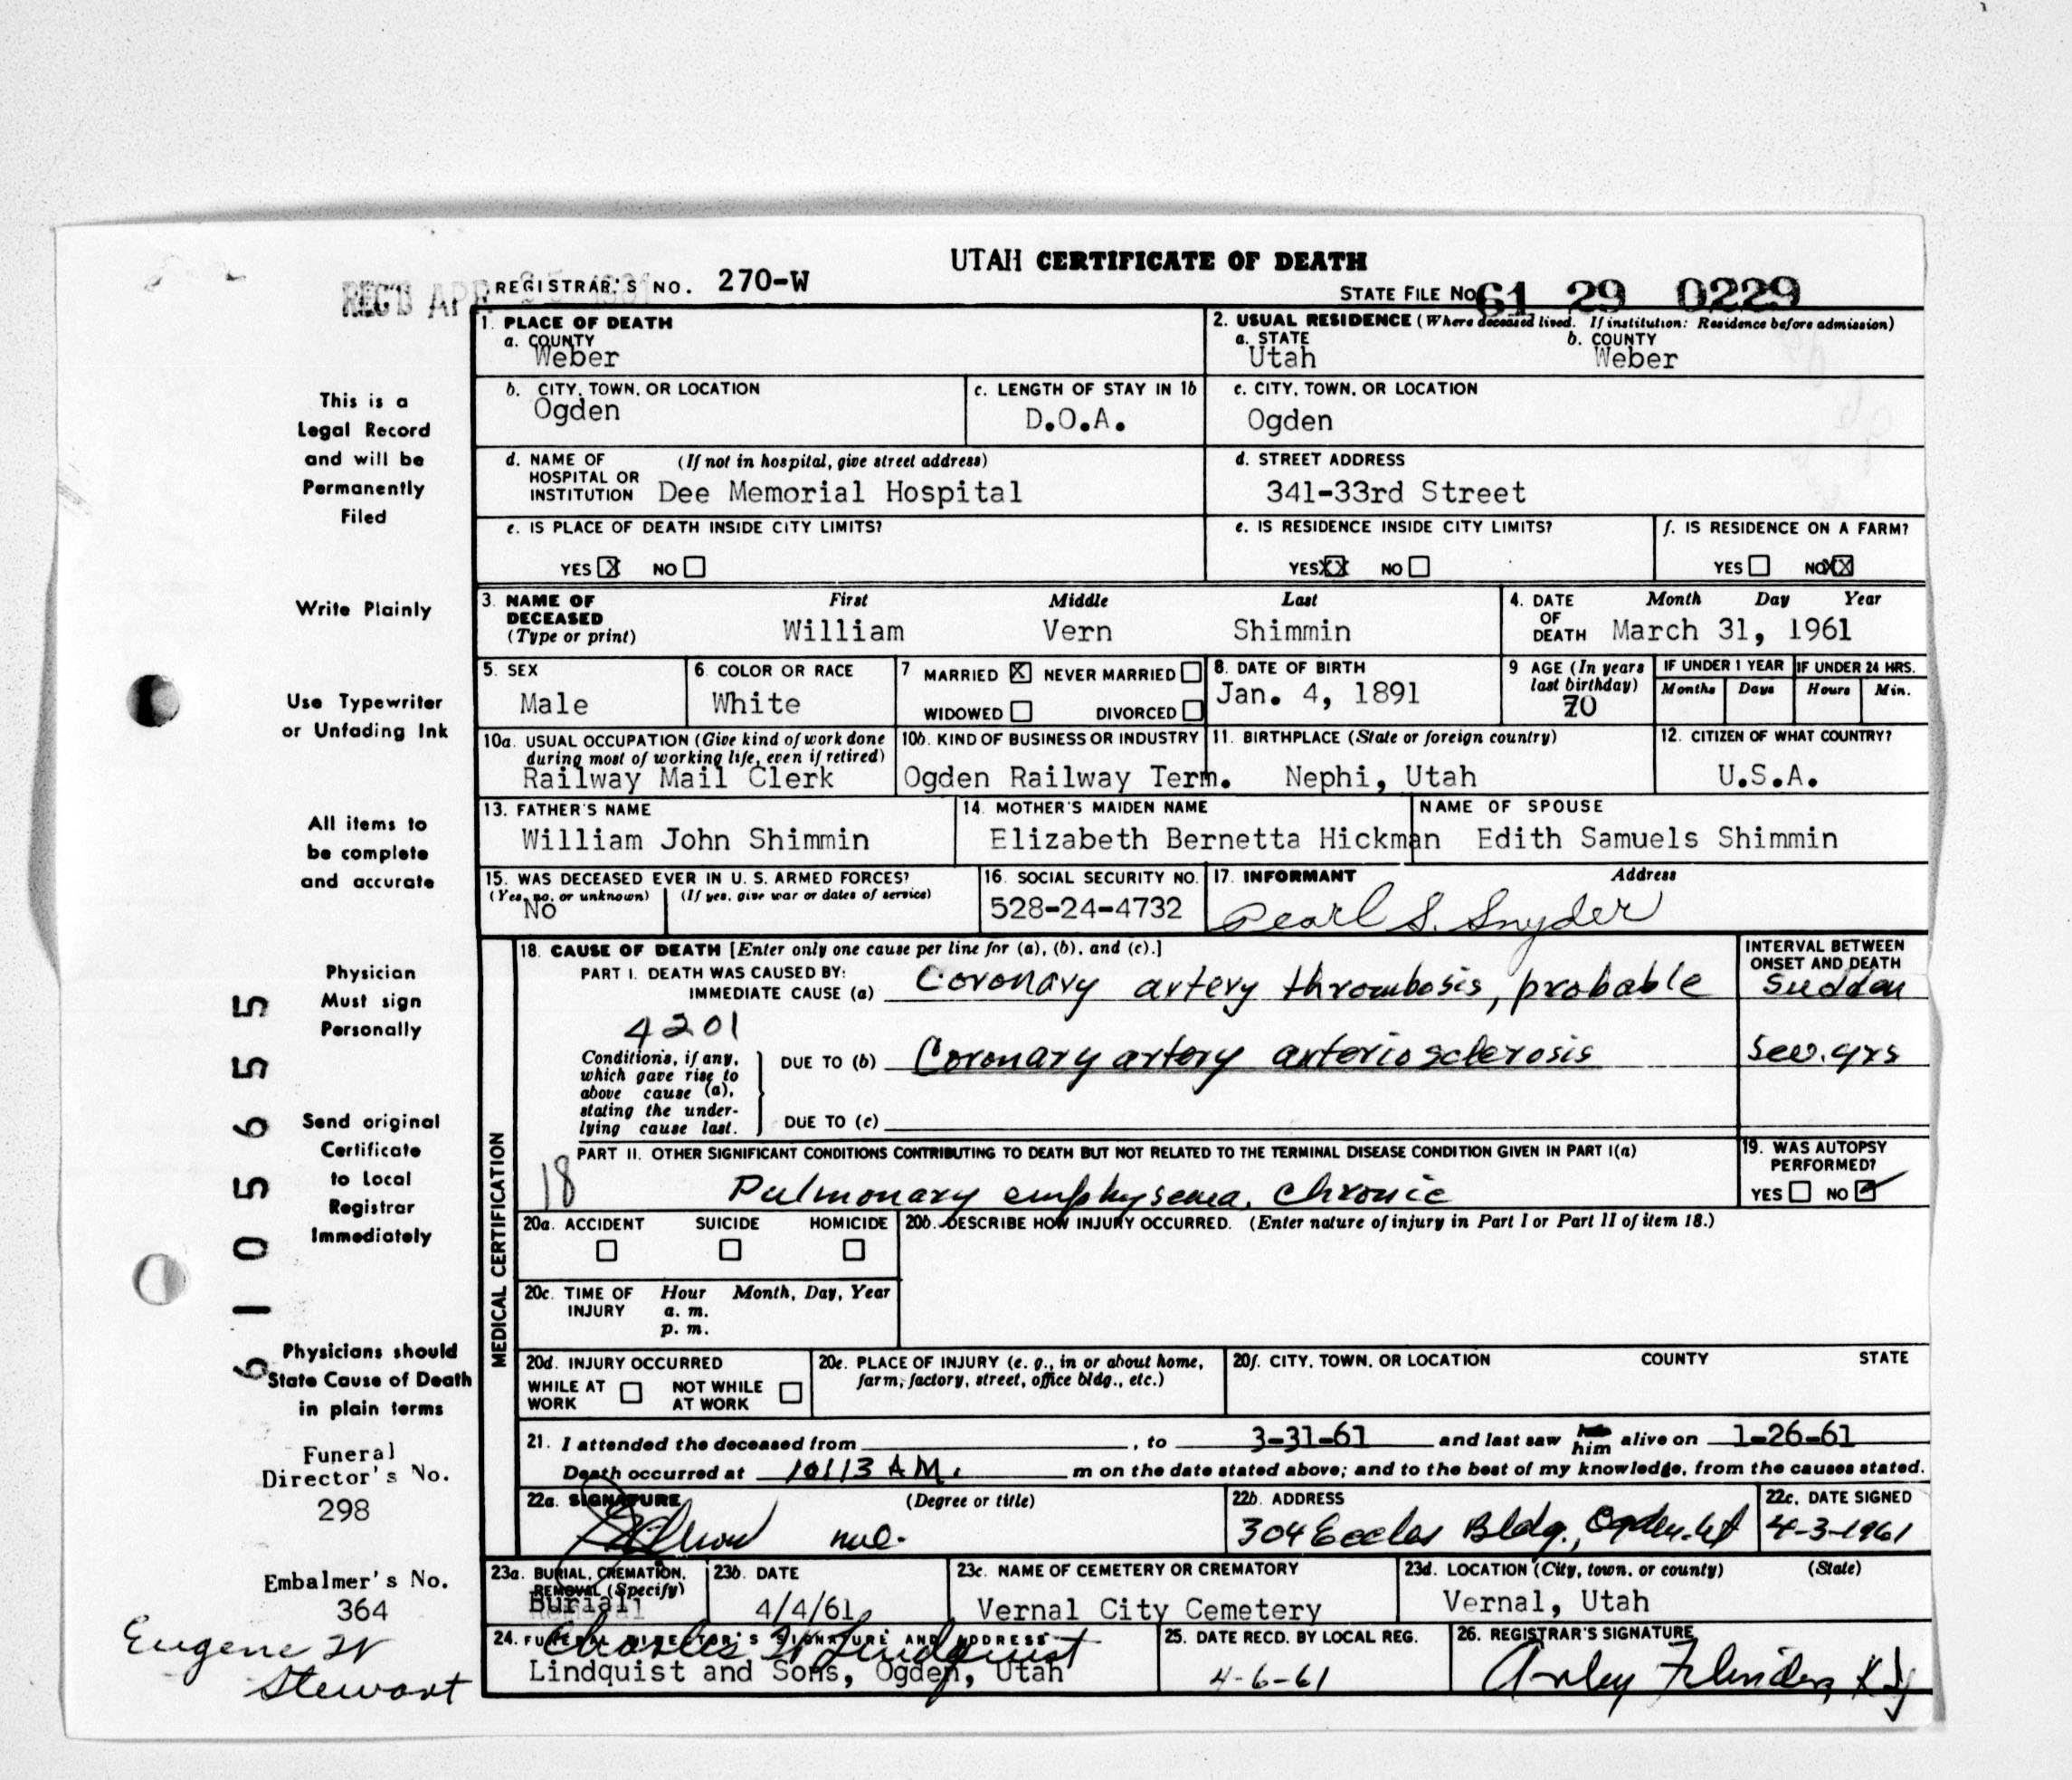 UTAH CERTIFICATE OF DEATH
REC'D APR 1961 REGISTRAR'S NO. 270-W
STATE FILE No. 61 29 0229
1. PLACE OF DEATH
a. COUNTY
Weber
2. USUAL RESIDENCE (Where deceased lived. If institution: Residence before admission)
a. STATE b. COUNTY
Utah Weber
b. CITY, TOWN, OR LOCATION
Ogden
c. LENGTH OF STAY IN 1b
D.O.A.
c. CITY, TOWN, OR LOCATION
Ogden
d. NAME OF (If not in hospital, give street address)
HOSPITAL OR
INSTITUTION Dee Memorial Hospital
d. STREET ADDRESS
341-33rd Street
e. IS PLACE OF DEATH INSIDE CITY LIMITS?
YES X NO
e. IS RESIDENCE INSIDE CITY LIMITS?
YES XX NO
f. IS RESIDENCE ON A FARM?
YES NO XX
3. NAME OF First Middle Last
DECEASED
(Type or print) William Vern Shimmin
4. DATE Month Day Year
OF
DEATH March 31, 1961
5. SEX
Male
6. COLOR OR RACE
White
7 MARRIED X NEVER MARRIED
WIDOWED DIVORCED
8. DATE OF BIRTH
Jan. 4, 1891
9 AGE (In years
last birthday)
70
IF UNDER 1 YEAR IF UNDER 24 HRS.
Months Days Hours Min.
10a. USUAL OCCUPATION (Give kind of work done
during most of working life, even if retired)
Railway Mail Clerk
10b. KIND OF BUSINESS OR INDUSTRY
Ogden Railway Term.
11. BIRTHPLACE (State or foreign country)
Nephi, Utah
12. CITIZEN OF WHAT COUNTRY?
U.S.A.
13. FATHER'S NAME
William John Shimmin
14. MOTHER'S MAIDEN NAME
Elizabeth Bernetta Hickman
NAME OF SPOUSE
Edith Samuels Shimmin
15. WAS DECEASED EVER IN U. S. ARMED FORCES?
(Yes, no, or unknown) (If yes, give war or dates of service)
No
16. SOCIAL SECURITY NO.
528-24-4732
17. INFORMANT Address
Pearl S. Snyder
MEDICAL CERTIFICATION
18. CAUSE OF DEATH [Enter only one cause per line for (a), (b), and (c).]
INTERVAL BETWEEN
ONSET AND DEATH
PART I. DEATH WAS CAUSED BY:
IMMEDIATE CAUSE (a) Coronary artery thrombosis, probable Sudden
4201
Conditions, if any,
which gave rise to
above cause (a),
stating the under-
lying cause last.
DUE TO (b) Coronary artery arteriosclerosis Sev. yrs
DUE TO (c)
PART II. OTHER SIGNIFICANT CONDITIONS CONTRIBUTING TO DEATH BUT NOT RELATED TO THE TERMINAL DISEASE CONDITION GIVEN IN PART I(a)
18 Pulmonary emphysema, chronic
19. WAS AUTOPSY
PERFORMED?
YES NO ✓
20a. ACCIDENT SUICIDE HOMICIDE
20b. DESCRIBE HOW INJURY OCCURRED. (Enter nature of injury in Part I or Part II of item 18.)
20c. TIME OF Hour Month, Day, Year
INJURY a. m.
p. m.
20d. INJURY OCCURRED
WHILE AT NOT WHILE
WORK AT WORK
20e. PLACE OF INJURY (e. g., in or about home,
farm, factory, street, office bldg., etc.)
20f. CITY, TOWN, OR LOCATION COUNTY STATE
21. I attended the deceased from , to 3-31-61 and last saw him alive on 1-26-61
Death occurred at 10:13 A M. m on the date stated above; and to the best of my knowledge, from the causes stated.
22a. SIGNATURE (Degree or title)
22b. ADDRESS
304 Eccles Bldg., Ogden, Ut
22c. DATE SIGNED
4-3-1961
23a. BURIAL, CREMATION,
REMOVAL (Specify)
Burial
23b. DATE
4/4/61
23c. NAME OF CEMETERY OR CREMATORY
Vernal City Cemetery
23d. LOCATION (City, town, or county) (State)
Vernal, Utah
24. FUNERAL DIRECTOR'S SIGNATURE AND ADDRESS
Charles W Lindquist
Lindquist and Sons, Ogden, Utah
25. DATE RECD. BY LOCAL REG.
4-6-61
26. REGISTRAR'S SIGNATURE
This is a
Legal Record
and will be
Permanently
Filed
Write Plainly
Use Typewriter
or Unfading Ink
All items to
be complete
and accurate
Physician
Must sign
Personally
Send original
Certificate
to Local
Registrar
Immediately
Physicians should
State Cause of Death
in plain terms
6 1 0 5 6 5 5
Funeral
Director's No.
298
Embalmer's No.
364
Eugene W
Stewart